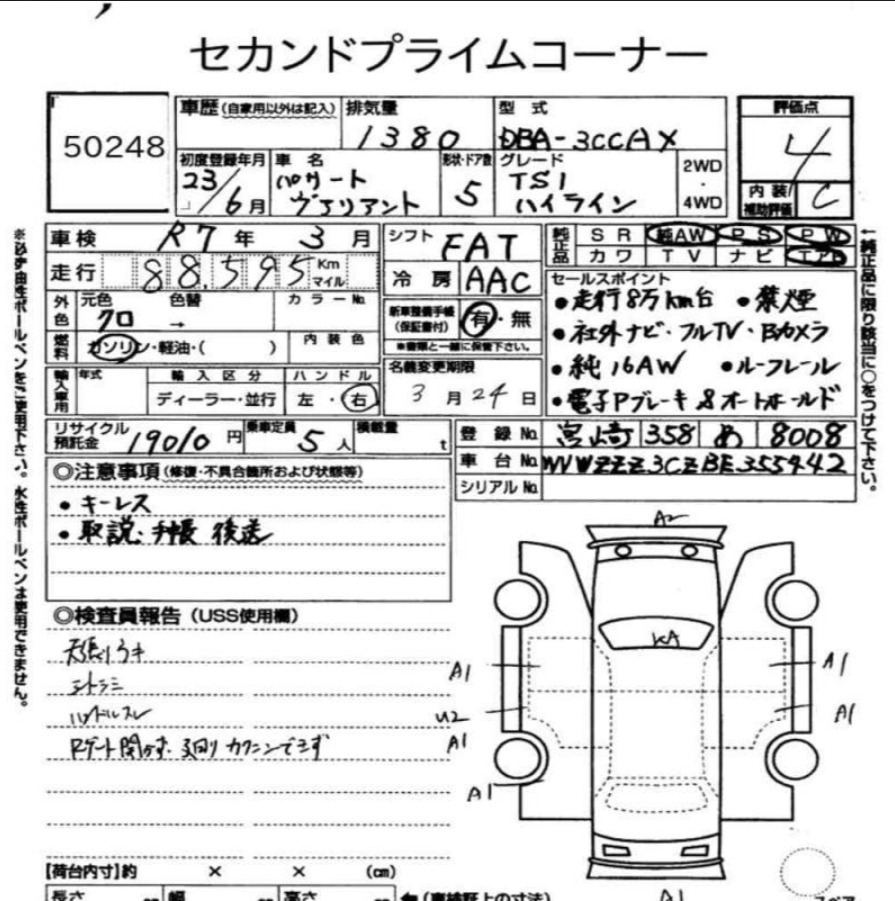 セカンドプライムコーナー
50248
車歴(自家用以外は記入) 排気量 型式 評価点
1380 DBA-3CCAX 4
初度登録年月 車名 形状・ドア数 グレード 2WD・4WD 内装/補助評価 C
23/6月 パサート ヴァリアント 5 TSI ハイライン
車検 R7年 3月 シフト FAT 純正品 SR 純AW PS PW
カワ TV ナビ エアB
走行 88,595 Km マイル 冷房 AAC
セールスポイント
●走行8万km台 ●禁煙
●社外ナビ・フルTV・Bカメラ
●純16AW ●ルーフレール
●電子Pブレーキ&オートホールド
外色 元色 色替 カラーNo.
クロ →
新車整備手帳(保証書付) 有・無
※書類と一緒に保管下さい。
燃料 ガソリン・軽油・( ) 内装色
名義変更期限
3月24日
輸入車用 年式 輸入区分 ハンドル
ディーラー・並行 左・右
リサイクル預託金 19010円 乗車定員 5人 積載量 t
登録No. 宮崎 358 め 8008
車台No. WVWZZZ3CZBE355442
シリアルNo.
◎注意事項(修復・不具合箇所および状態等)
●キーレス
●取説、手帳 後送
◎検査員報告(USS使用欄)
天張りウキ
シートシミ
ハンドルスレ
Rゲート開かず、廻りカクニンできず
A2
KA
A1 A1
U2 A1
A1
A1
A1
【荷台内寸】約 × × (cm)
長さ 幅 高さ (車検証上の寸法)
スペア
※必ず油性ボールペンをご使用下さい。水性ボールペンは使用できません。
←純正品に限り該当に○をつけて下さい。